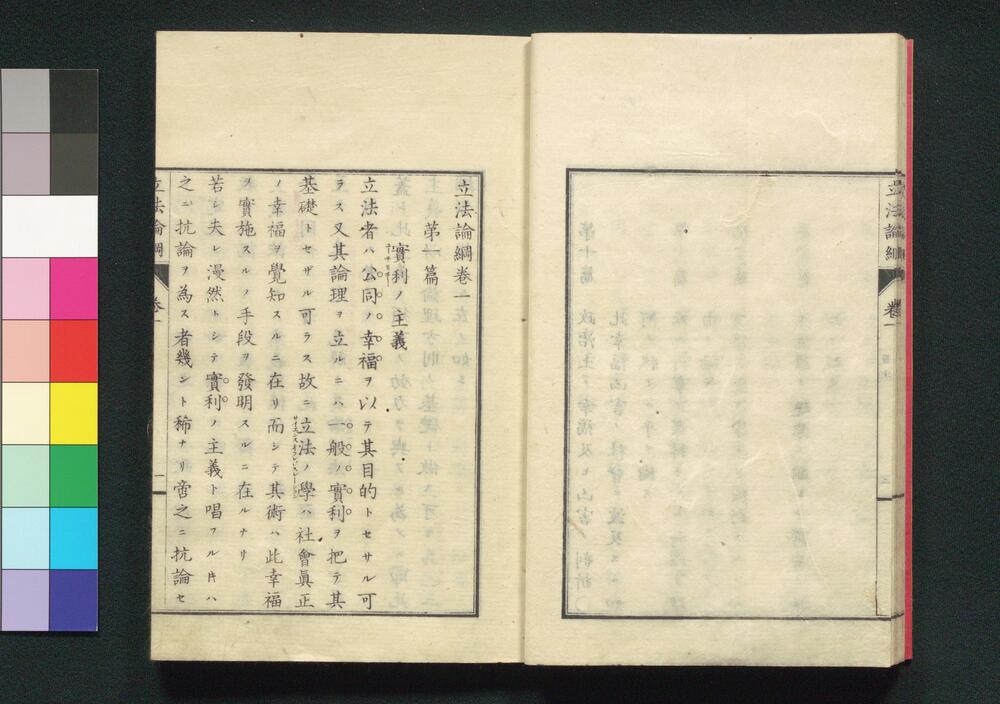 立法論綱 卷一
立法論綱卷一
第一篇
實利ノ主義
立法者ハ公同ノ幸福ヲ以テ其目的トセサル可
ラス又其論理ヲ立ルニハ一般ノ實利ヲ把テ其
基礎トセザル可ラス故ニ立法ノ學ハ社會眞正
ノ幸福ヲ覺知スルニ在リ而シテ其術ハ此幸福
ヲ實施スルノ手段ヲ發明スルニ在ルナリ
若シ夫レ漫然トシテ實利ノ主義ト唱フル片ハ
之ニ抗論ヲ為ス者幾ント稀ナリ啻之ニ抗論セ
立法論綱 卷一 一